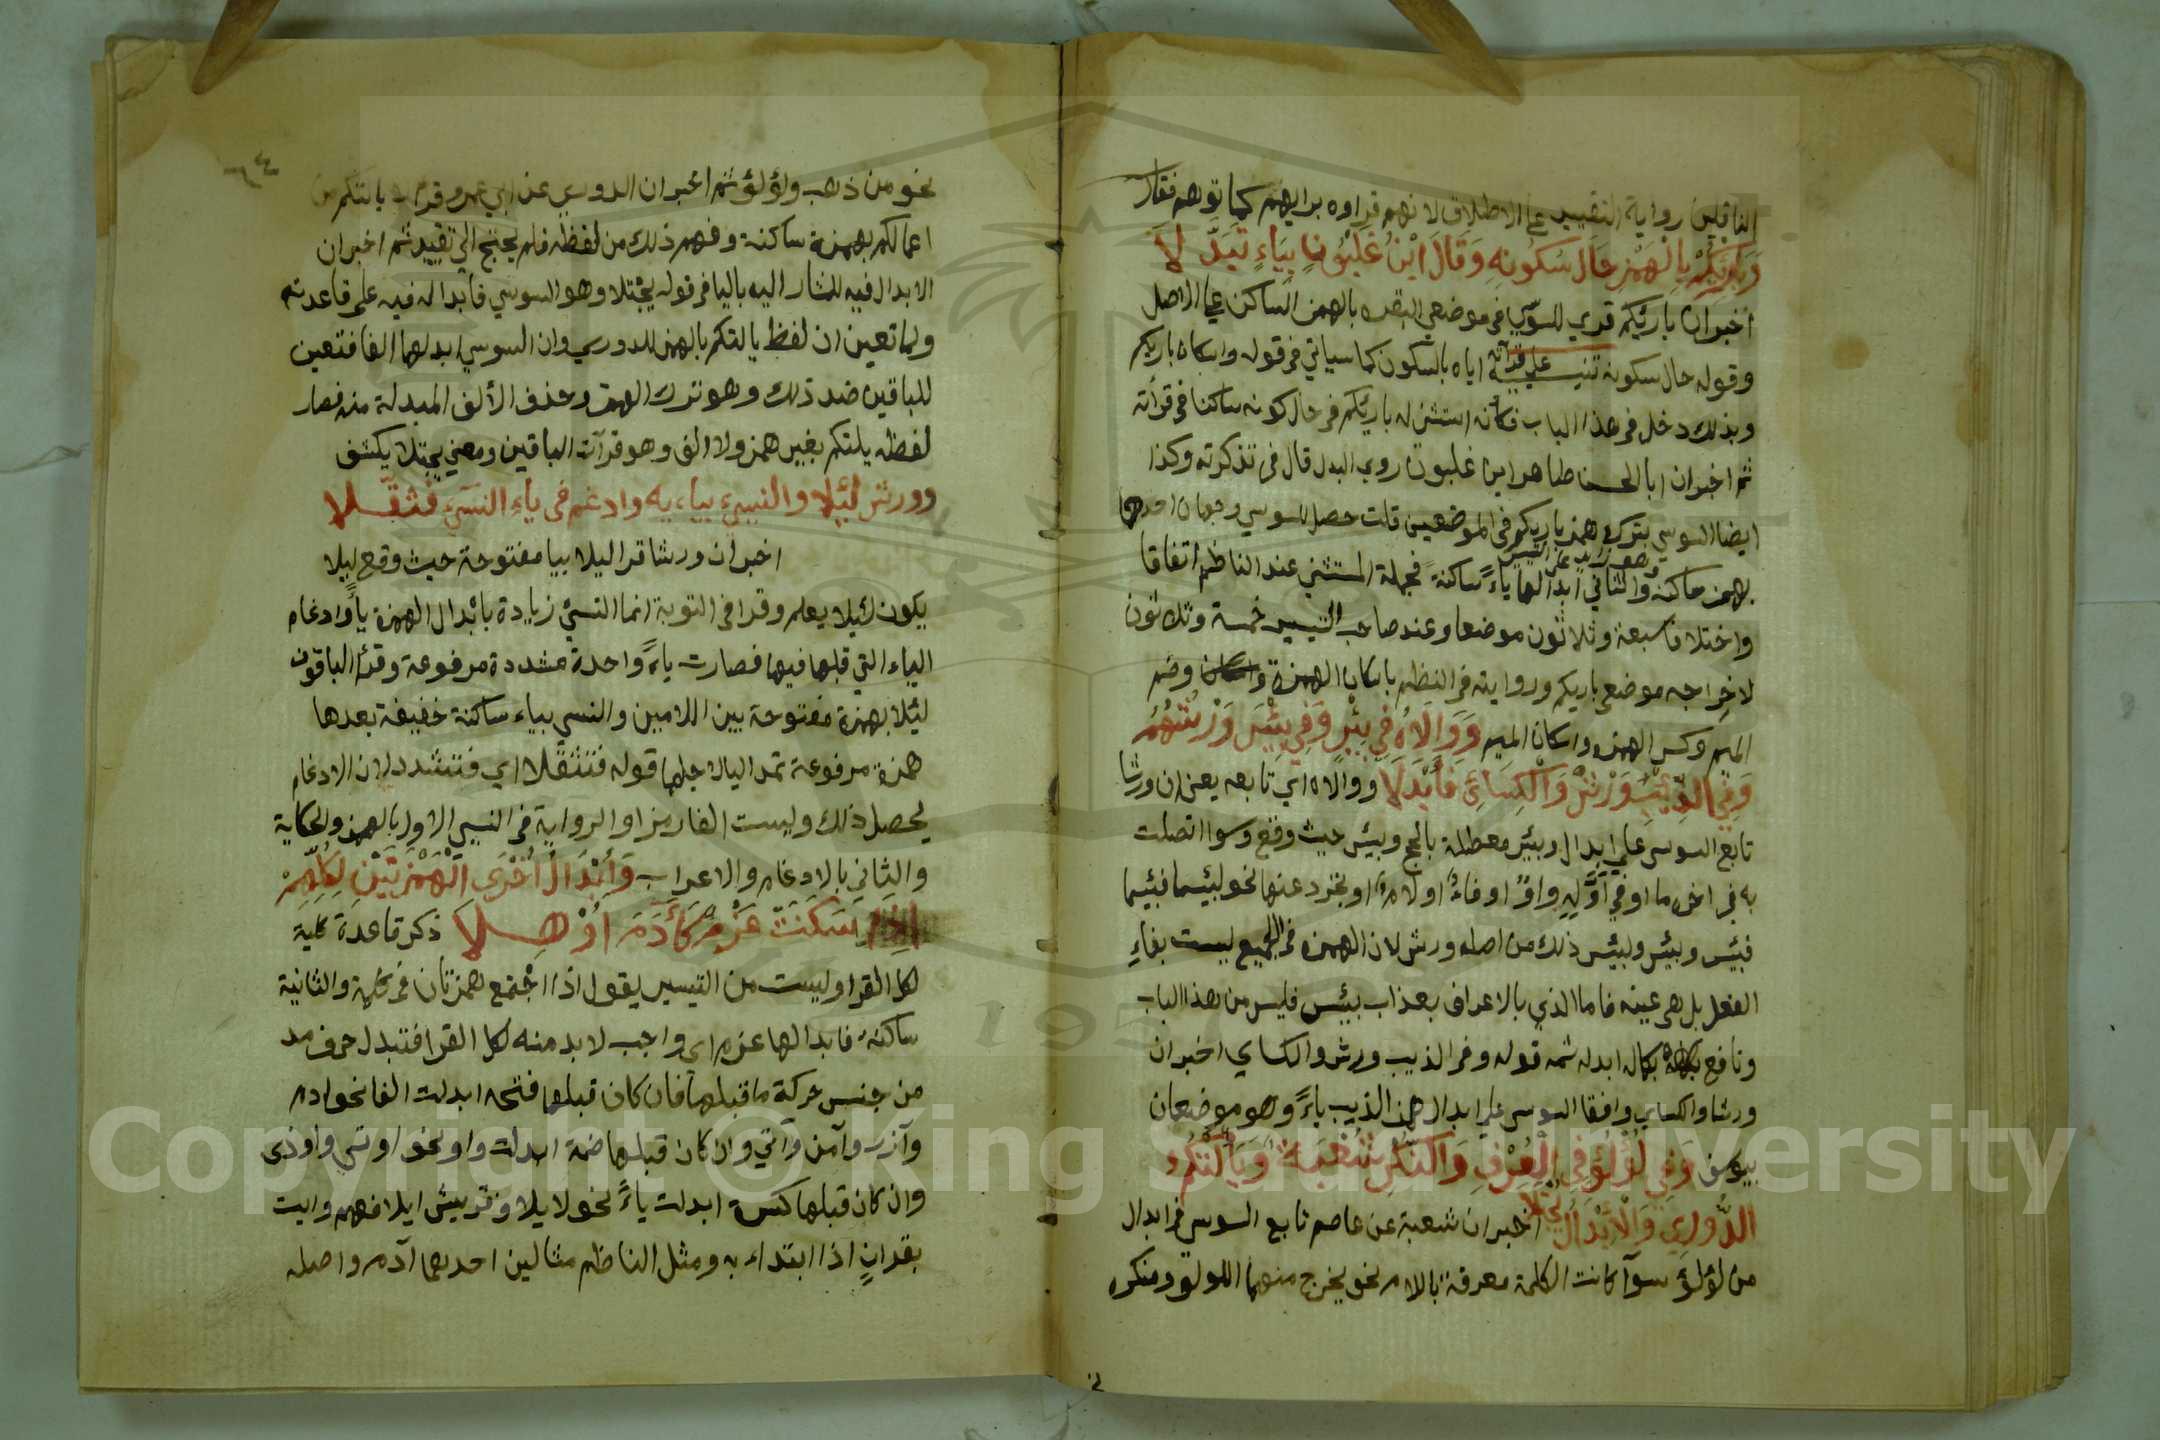 الناقلين رواية التقييد على الاطلاق لانهم قراوه برايهم كما توهم فقال
وَبَارِئِكُمْ بِالْهَمْزِ حَالَ سُكُونِهِ وَقَالَ ابْنُ غَلْبُونٍ بِيَاءٍ تَبَدَّلَا
اخبر ان بارئكم قرئ للسوسي في موضعي البقره بالهمز الساكن على الاصل
وقوله حال سكونه تنبيه على قرآته اياه بالسكون كما سياتي في قوله واسكان باريكم
وبذلك دخل في هذا الباب فكأنه استثنى له بارئكم في حال كونه ساكنا في قرأته
ثم اخبر ان ابا الحسن طاهر ابن غلبون روي البدل قال في تذكرته وكذا
ايضا السوسي بترك همز باريكم في الموضعين قلت حصل للسوسي وجهان احدهما
بهمز ساكنه وهو زايد على التيسير والثاني ابدالها ياءً ساكنة فجملة المستثنى عند الناظم اتفاقا
واختلافا سبعة وثلاثون موضعا وعند صاحب التيسير خمسة وثلاثون
لاخراجه موضعي باريكم وروايته في النظم باسكان الهمزة وضم
الميم وكسر الهمزه واسكان الميم وَوَالَاهُ فِي بِئْرٍ وَفِي بِئْسَ وَرْشُهُمْ
وَفِي الذِّئْبِ وَرْشٌ وَالْكِسَائِي فَأَبْدَلَا ووالاه اي تابعه يعني ان ورشا
تابع السوسي علي ابدال وبئر معطلة بالحج وبئس حيث وقع وسوا اتصلت
به في اخره ما او في أوَّلِهِ واوٌ او فاءٌ او لامٌ او تجرد عنها نحو لبئسما فبئسما
فبئس وبئس ولبئس ذلك من اصله ورش لان الهمزه في الجميع ليست بفاءِ
الفعل بل هي عينه فاما الذي بالاعراف بعذاب بيئس فليس من هذا الباب
ونافع بكماله ابدله ثمه قوله وفي الذيب ورش والكساي اخبر ان
ورشا والكساي وافقا السوسي على ابدال همز الذيب ياءً وهو موضعان
بيوسف وَفِي لُؤْلُؤٍ فِي الْعُرْفِ وَالنُّكْرِ شُعْبَةٌ وَيَأْلِتْكُمُ
الدُّورِي وَالْاِبْدَالُ يُجْتَلَا اخبر ان شعبة عن عاصم تابع السوسي في ابدال
من لؤلؤ سوآ كانت الكلمة معرفة بالام نحو يخرج منهما اللولو ومنكره
نحو من ذهب ولؤلؤ ثم اخبر ان الدوري عن ابي عمرو قرا يالتكم من
اعمالكم بهمزة ساكنة وفهم ذلك من لفظه فلم يحتج الي تقييد ثم اخبر ان
الابدال فيه للمشار اليه باليا في قوله يجتلا وهو السوسي فابداله فيه على قاعدته
ولما تعين ان لفظ يالتكم بالهمز للدوري وان السوسي ابدلها الفا فتعين
للباقين ضد ذلك وهو ترك الهمز وحذف الألف المبدلة منه فصار
لفظه يلتكم بغير همز ولا الف وهو قرآت الباقين ومعني يجتلا يكشف
وورش ليلا والنسيء بياءيه وادغم في ياء النسيء فثقلا
اخبر ان ورشا قرا ليلا بيا مفتوحة حيث وقع ليلا
يكون لئيلا يعلم وقرا في التوبة انما النسئ زيادة بابدال الهمزة ياءً وادغام
الياء التي قبلها فيها فصارت ياءً واحدة مشددة مرفوعة وقرئ الباقون
لئلا بهمزة مفتوحة بين اللامين والنسي بياء ساكنة خفيفة بعدها
همزة مرفوعة تمد اليالاجلها قوله فتثقلا اي فتشدد لان الادغام
يحصل ذلك وليست الفا رمزا والرواية في النسي الاول بالهمز والحكاية
والثاني بالادغام والاعراب وَاِبْدَالُ اُخْرَى الْهَمْزَتَيْنِ لِكُلِّهِمْ
اذا سَكَنَتْ عَزْمٌ كَأَدَمَ اُوْهِلَا ذكر قاعدة كلية
لكل القرا وليست من التيسير يقول اذا اجتمع همزتان في كلمة والثانية
ساكنة فابدالها عزم اى واجب لا بد منه لكل القرا فتبدل حرف مد
من جنس حركة ما قبلها فان كان قبلها فتحه ابدلت الفا نحو ادم
وآزر وآمن وآتي وان كان قبلها ضمة ابدلت واوا نحو اوتي واوذى
وان كان قبلها كسرة ابدلت ياءً نحو لايلاف قريش ايلافهم وايت
بقرانٍ اذا ابتداء به ومثل الناظم مثالين احدهما آدم واصله
Copyright © King Saud University
1957